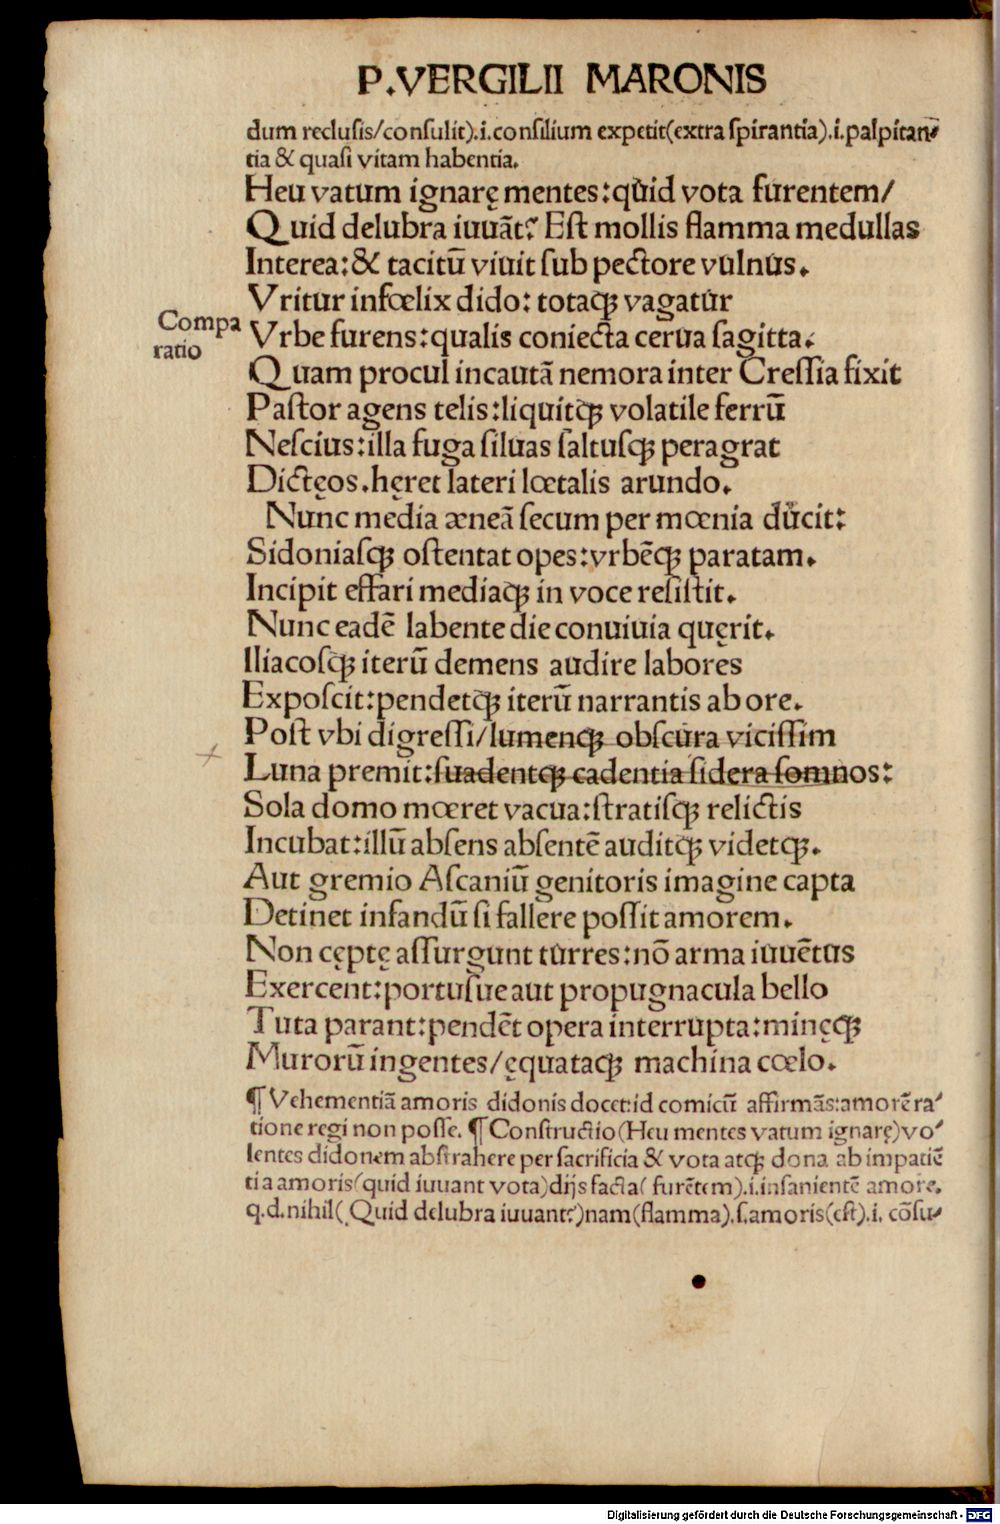 P.VERGILII MARONIS
dum reclusis/consulit).i.consilium expetit(extra spirantia).i.palpitan-
tia & quasi vitam habentia.
Heu vatum ignarę mentes:quid vota furentem/
Quid delubra iuuāt? Est mollis flamma medullas
Interea:& tacitū viuit sub pectore vulnus.
Vritur infœlix dido: totaꝗꝫ vagatur
Compa
ratio
Vrbe furens:qualis coniecta cerua sagitta.
Quam procul incautā nemora inter Cressia fixit
Pastor agens telis:liquitꝗꝫ volatile ferrū
Nescius:illa fuga siluas saltusꝗꝫ peragrat
Dictęos.hęret lateri lœtalis arundo.
Nunc media æneā secum per mœnia ducit:
Sidoniasꝗꝫ ostentat opes:vrbēꝗꝫ paratam.
Incipit effari mediaꝗꝫ in voce resistit.
Nunc eadē labente die conuiuia quęrit.
Iliacosꝗꝫ iterū demens audire labores
Exposcit:pendetꝗꝫ iterū narrantis ab ore.
Post vbi digressi/lumenꝗꝫ obscura vicissim
Luna premit:suadentꝗꝫ cadentia sidera somnos:
Sola domo mœret vacua:stratisꝗꝫ relictis
Incubat:illū absens absentē auditꝗꝫ videtꝗꝫ.
Aut gremio Ascaniū genitoris imagine capta
Detinet infandū si fallere possit amorem.
Non cęptę assurgunt turres:nō arma iuuētus
Exercent:portusue aut propugnacula bello
Tuta parant:pendēt opera interrupta:minęꝗꝫ
Murorū ingentes/ęquataꝗꝫ machina cœlo.
¶ Vehementiā amoris didonis docet:id comicū affirmās:amorē ra-
tione regi non posse. ¶ Constructio(Heu mentes vatum ignarę)vo-
lentes didonem abstrahere per sacrificia & vota atꝗꝫ dona ab impatiē
tia amoris(quid iuuant vota)dijs facta( furētem).i.insanientē amore.
q.d.nihil(.Quid delubra iuuant?)nam(flamma).s.amoris(est).i. cōsu-
Digitalisierung gefördert durch die Deutsche Forschungsgemeinschaft - DFG